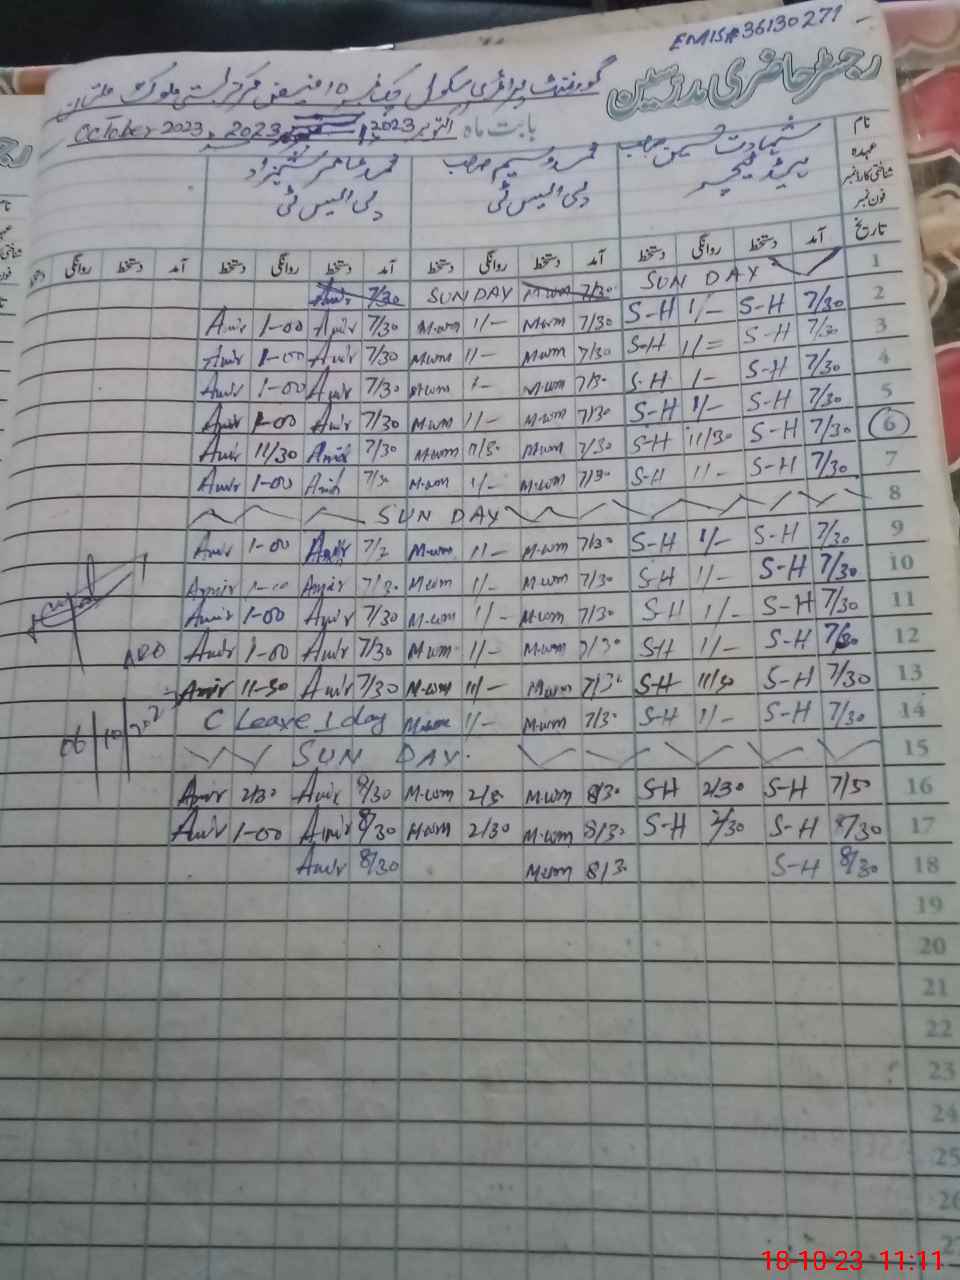 EMIS# 36130271
رجسٹر حاضری مدرسین
گورنمنٹ پرائمری سکول چک نمبر 10 فیض مرکز بستی ملوک ملتان
بابت ماہ اکتوبر 2023 2023 October 2023
نام شہادت حسین صاحب محمد وسیم صاحب محمد عامر شہزاد
عہدہ ہیڈ ٹیچر پی ایس ٹی پی ایس ٹی
شناختی کارڈ نمبر
فون نمبر
تاریخ آمد دستخط روانگی دستخط آمد دستخط روانگی دستخط آمد دستخط روانگی دستخط آمد دستخط روانگی دستخط
1 SUN DAY 7/30 M.wm SUNDAY 7/30 Amir
2 7/30 S-H 1/- S-H 7/30 M.wm 1/- M.wm 7/30 Amir 1-00 Amir
3 7/30 S-H 1/= S-H 7/30 M.wm 1/- M.wm 7/30 Amir 1-00 Amir
4 7/30 S-H 1- S-H 7/30 M.wm 1- M.wm 7/30 Amir 1-00 Amir
5 7/30 S-H 1/- S-H 7/30 M.wm 1/- M.wm 7/30 Amir 1-00 Amir
6 7/30 S-H 11/30 S-H 7/30 M.wm 11/30 M.wm 7/30 Amir 11/30 Amir
7 7/30 S-H 1/- S-H 7/30 M.wm 1/- M.wm 7/30 Amir 1-00 Amir
8 SUN DAY
9 7/30 S-H 1/- S-H 7/30 M.wm 1/- M.wm Amir 1-00 Amir
10 7/30 S-H 1/- S-H 7/30 M.wm 1/- M.wm 7/30 Amir Amir
11 7/30 S-H 1/- S-H 7/30 M.wm 1/- M.wm 7/30 Amir 1-00 Amir
12 7/30 S-H 1/- S-H 7/30 M.wm 1/- M.wm 7/30 Amir 1-00 Amir
ADO
13 7/30 S-H 11/30 S-H 7/30 M.wm 11/- M.wm 7/30 Amir 11-30 Amir
14 7/30 S-H 1/- S-H 7/30 M.wm 1/- M.wm C Leave 1 day
06/10/202
15 SUN DAY
16 7/30 S-H 2/30 S-H 8/30 M.wm 2/30 M.wm 8/30 Amir 2/30 Amir
17 8/30 S-H 2/30 S-H 8/30 M.wm 2/30 M.wm 8/30 Amir 1-00 Amir
18 8/30 S-H 8/30 M.wm 8/30 Amir
19
20
21
22
23
24
25
26
27
18-10-23 11:11